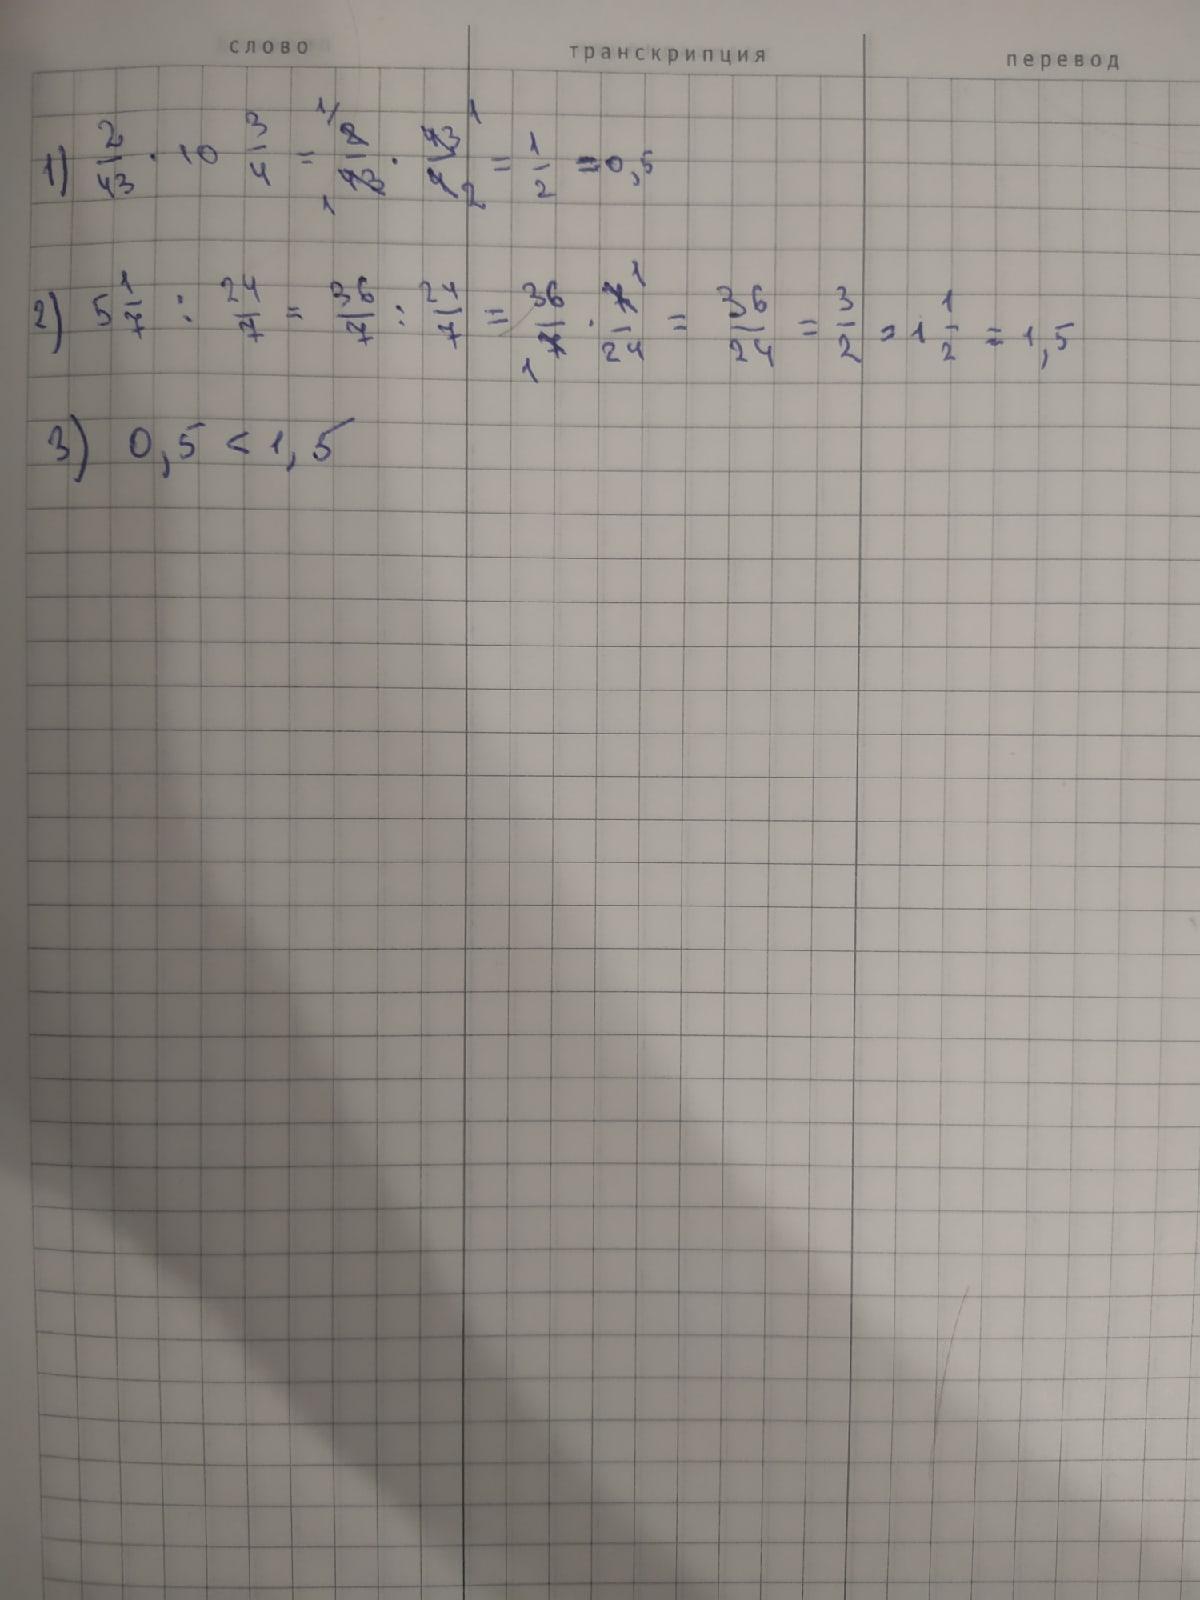 слово транскрипция перевод
1) 2/43 · 10 3/4 = 2/43 · 43/4 = 1/2 = 0,5
2) 5 1/7 : 24/7 = 36/7 : 24/7 = 36/7 · 7/24 = 36/24 = 3/2 = 1 1/2 = 1,5
3) 0,5 < 1,5